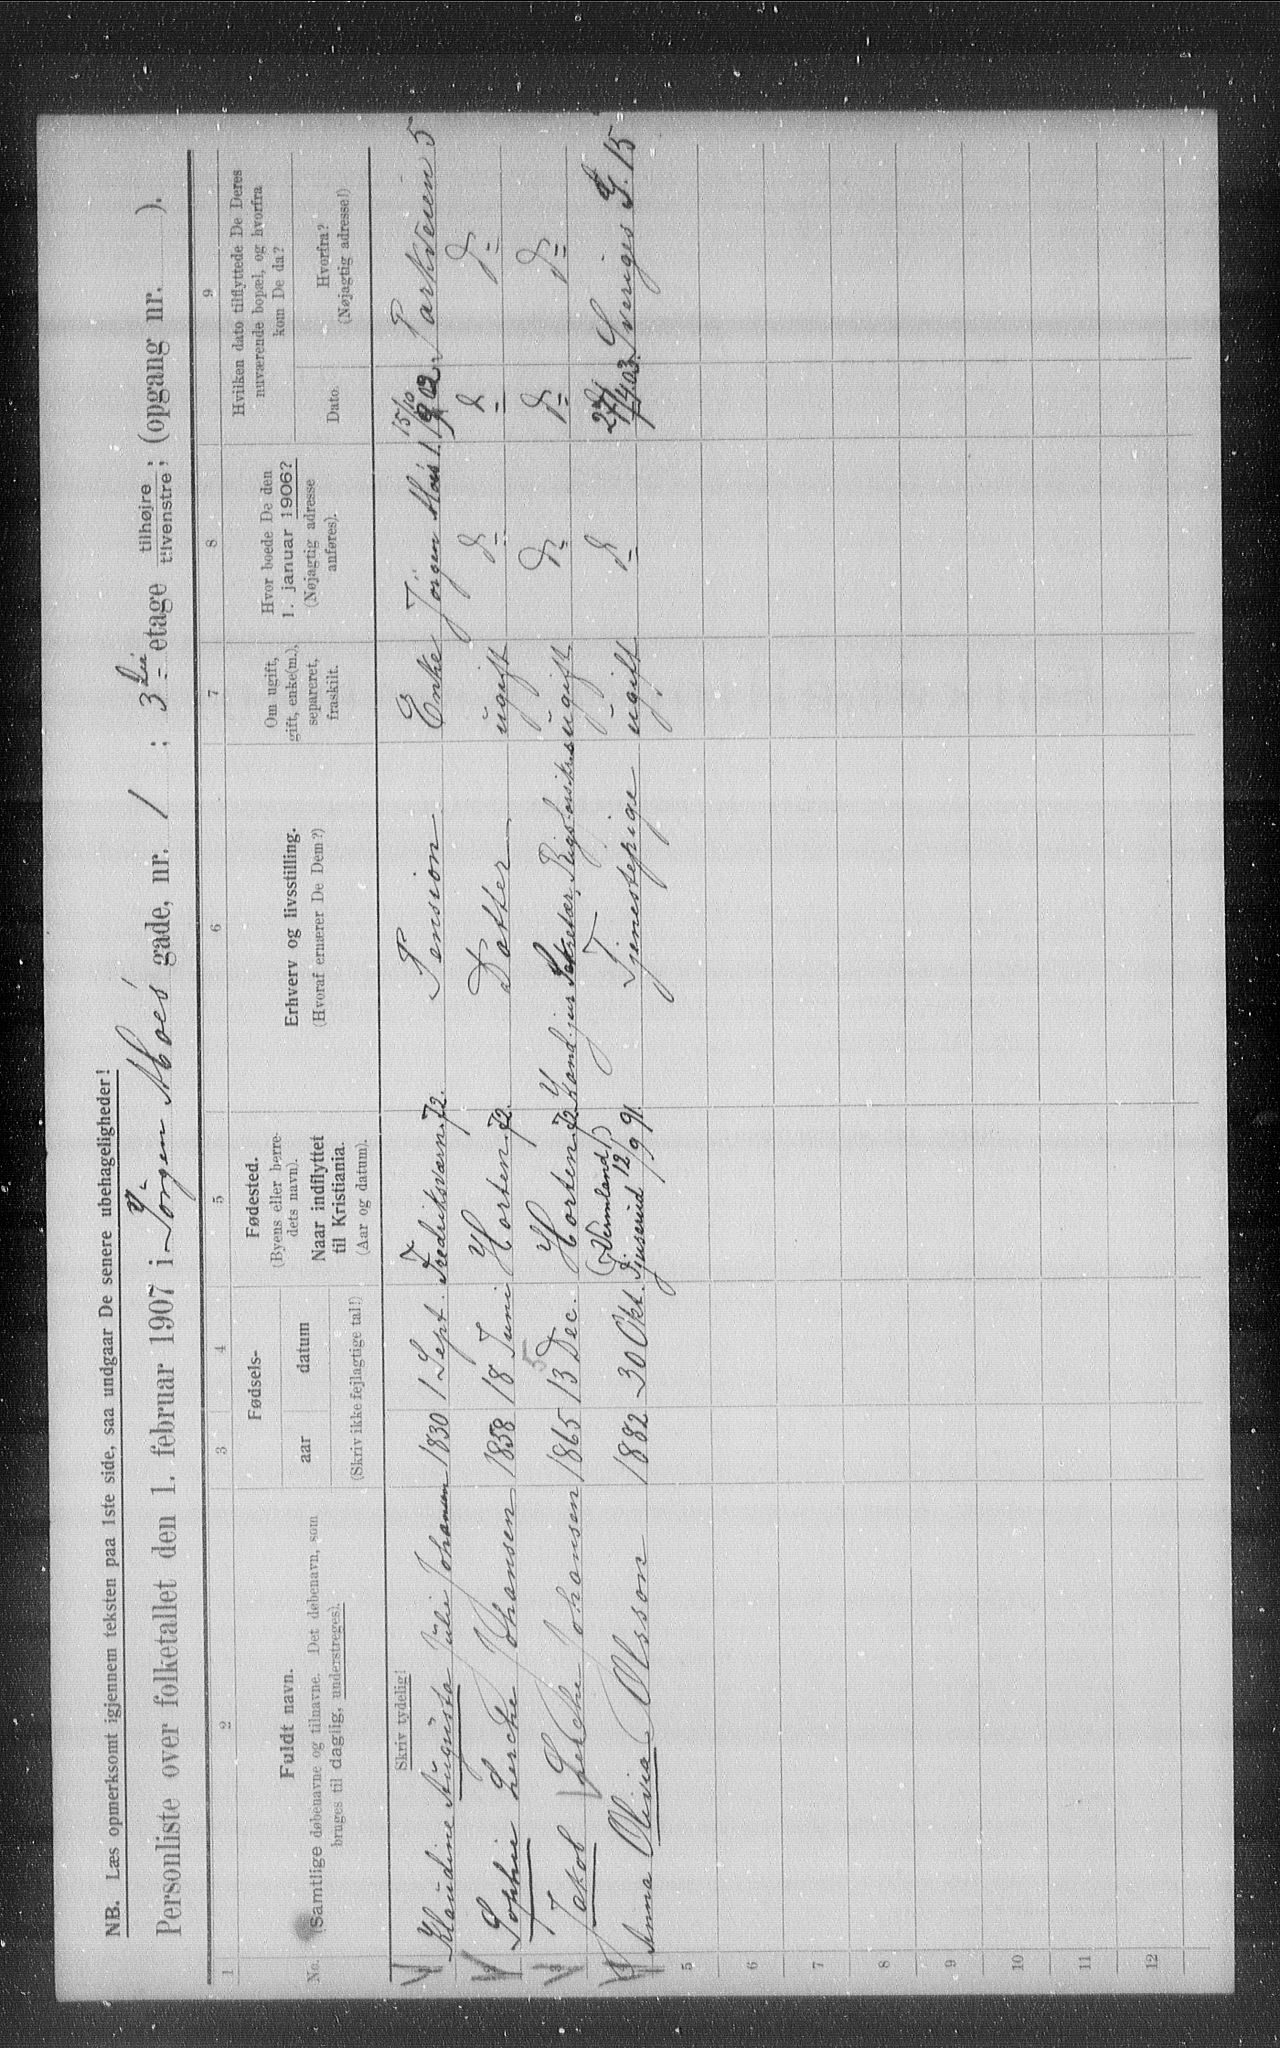 NB. Læs opmerksomt igjennem teksten paa 1ste side, saa undgaar De senere ubehageligheder!
Personliste over folketallet den 1. februar 1907 i Jörgen Moés gade, nr. 1 ; 3die etage tilhøjre/tilvenstre; (opgang nr. ).
1 2 3 4 5 6 7 8 9
No.
Fuldt navn.
(Samtlige døbenavne og tilnavne. Det døbenavn, som
bruges til daglig, understreges).
Skriv tydelig!
Fødsels-
aar datum
(Skriv ikke fejlagtige tal!)
Fødested.
(Byens eller herre-
dets navn).
Naar indflyttet
til Kristiania.
(Aar og datum).
Erhverv og livsstilling.
(Hvoraf ernærer De Dem?)
Om ugift,
gift, enke(m.),
separeret,
fraskilt.
Hvor boede De den
1. januar 1906?
(Nøjagtig adresse
anføres).
Hvilken dato tilflyttede De Deres
nuværende bopæl, og hvorfra
kom De da?
Dato.
Hvorfra?
(Nøjagtig adresse!)
Klaudine Augusta Julie Johansen 1830 1 Sept. Fredriksværn 72. Pension Enke Jörgen Moés 1. 15/10 902. Parkveien 5
2 Sophie Lerche Johansen 1858 18 Juni Horten 72. Datter ugift d= d= d=
3 Jakob Lerche Johansen 1865 13 Dec. Horten 72. Kand. jur. Sekretær, ugift d= d= d=
5
(Vermland)
Anna Olivia Olsson 1882 30 Okt. 12/9 91. Tjenestepige ugift d= 03. Sveriges G. 15
5
6
7
8
9
10
11
12